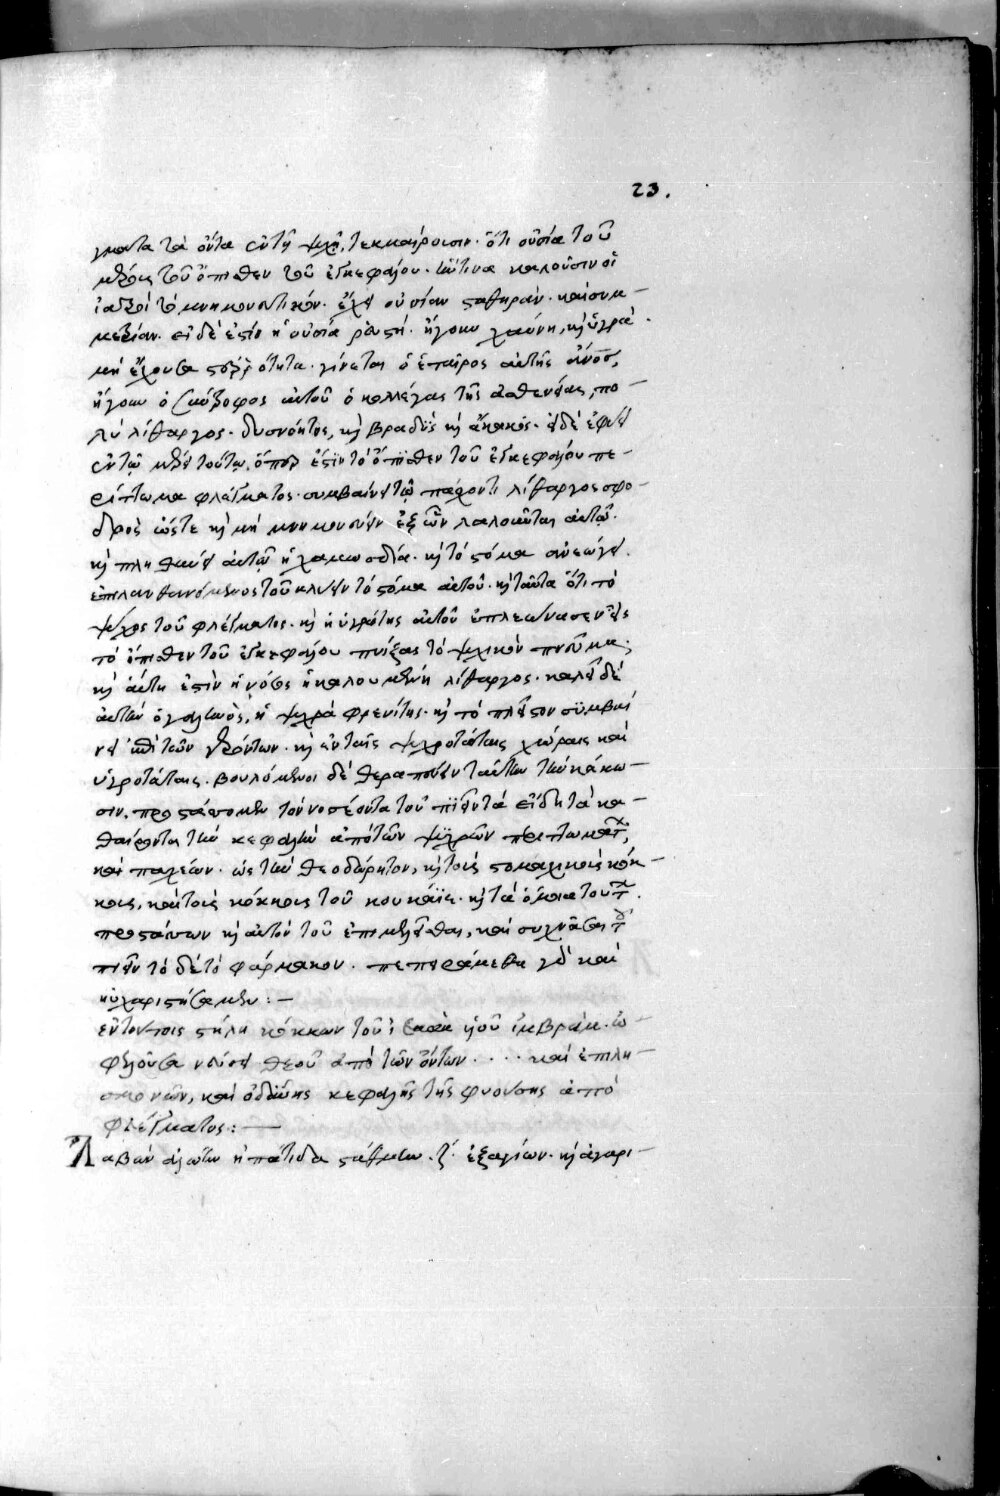 23.
γματα τὰ ὄντα ἐν τῇ ψυχῇ, τεκμαίρουσιν. ὅτι οὐσία τοῦ
μέρους τοῦ ὄπισθεν τοῦ ἐγκεφάλου. ἥντινα καλοῦσιν οἱ
ἰατροὶ τὸ μνημονευτικόν. ἔχει οὐσίαν σταθηράν. καὶ συμ-
μετρίαν. εἰ δέ ἐστιν ἡ οὐσία ῥευστή. ἤγουν χαύνη, καὶ ὑγρὰ.
μὴ ἔχουσα στερρότητα. γίνεται ὁ ἑταῖρος αὐτῆς ἄνος,
ἤγουν ὁ αὐτοῦ ὁ τῆς ἀσθενείας, πο-
λύ λίθαργος. δυσνόητος, καὶ βραδὺς καὶ ἄκακος. εἰ δὲ ἐφ
ἐν τῷ μέρει τούτῳ, ὅπερ ἐστὶν τὸ ὄπισθεν τοῦ ἐγκεφάλου πε-
ρίττωμα φλέγματος. συμβαίνει τῷ πάσχοντι λίθαργος σφο-
δρὸς ὥστε καὶ μὴ μνημονεύειν ἐξ ὧν λαλοῦνται αὐτῷ.
καὶ πληθαίνει αὐτῷ ἡ . καὶ τὸ στόμα ἀνεώγει.
ἐπιλανθανόμενος τοῦ κλείειν τὸ στόμα αὐτοῦ. καὶ ταῦτα ὅτι τὸ
ψύχος τοῦ φλέγματος. καὶ ἡ ὑγρότης αὐτοῦ ἐπλεώνασεν εἰς
τὸ ὄπισθεν τοῦ ἐγκεφάλου πνίξας τὸ ψυχικὸν πνεῦμα.
καὶ αὕτη ἐστὶν ἡ νόσος ἡ καλουμένη λίθαργος. καλεῖ δὲ
αὐτὴν ὁ γαληνὸς, ἡ ψυχρὰ φρενίτης. καὶ τὸ πλεῖστον συμβαί
νει ἐπὶ τῶν γερόντων. καὶ ἐν ταῖς ψυχροτάταις χώραις καὶ
ὑγροτάταις. βουλόμενοι δὲ θεραπεύειν ταύτην τὴν κάκω-
σιν, προστάσσομεν τὸν νοσέοντα τοῦ πιεῖν τὰ εἴδη τὰ κα-
θαίροντα τὴν κεφαλὴν ἀπὸ τῶν ψυχρῶν περιττωμάτ,
καὶ παχέων. ὡς τὴν θεοδώρητον, καὶ τοὺς στομαχικοὺς κόκ-
κους, καὶ τοὺς κόκκους τοῦ κουκάϊα. καὶ τὰ ὅμοια τούτ.
προστάττων καὶ αὐτὸν τοῦ ἐπιμελεῖσθαι, καὶ συχνᾶσαι τ
πιεῖν τὸ δὲ τὸ φάρμακον. πεπειράμεθα γὰρ καὶ
ηὐχαριστήσαμεν:-
ἔντονποις στήλη κόκκων τοῦ ἰσαὰκ υἱοῦ ἰμβράμ. ὠ-
φελοῦσα νεύσει θεοῦ ἀπὸ τῶν ὄντων .... καὶ ἐπιλη-
σμονῶν, καὶ ὀδύνης κεφαλῆς τῆς φυούσης ἀπὸ
φλέγματος:-
Λαβὼν ἀλωὴν ἡπάτιδα στάθμιον. ζ. ἐξαγίων. καὶ ἀγαρι-